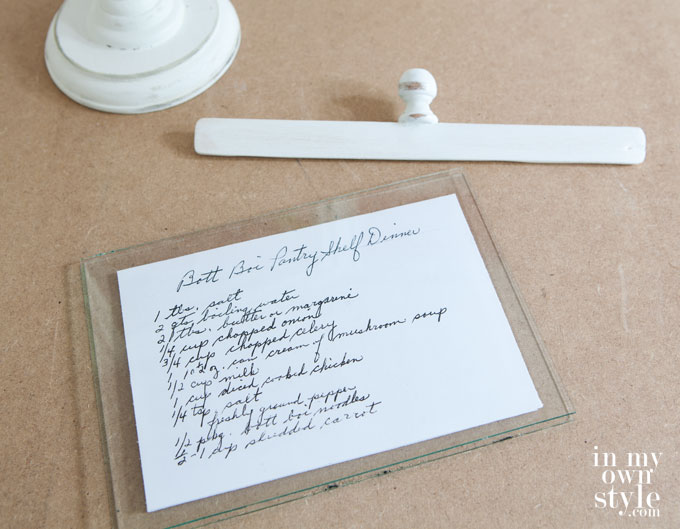 Bott Boi Pantry Shelf Dinner
1 tbs. salt
2 qts. boiling water
2 tbs. butter or margarine
1/4 cup chopped onions
3/4 cup chopped celery
1 10½ oz. can cream of mushroom soup
1/2 cup milk
1 cup diced cooked chicken
1/4 tsp salt
freshly ground pepper
1/2 pkg. bott boi noodles
1/2 - 1 cup shredded carrot
in my
own
style
.com